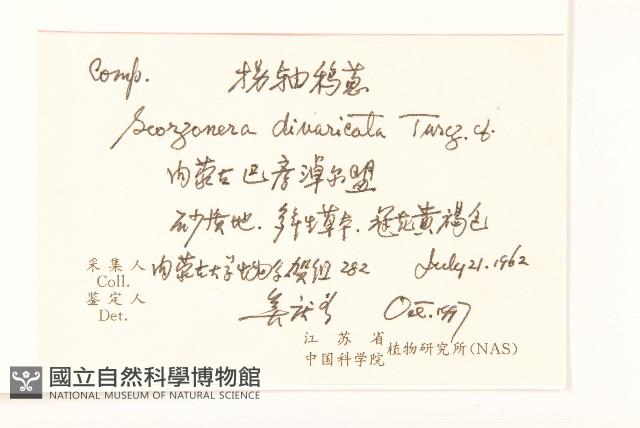 Comp. 拐轴鸦葱
Scorzonera divaricata Turcz. cf.
内蒙古巴彦淖尔盟
砂质地.多年生草本.冠毛黄褐色
采集人 Coll. 内蒙古大学生物系 组 282 July 21. 1962
鉴定人 Det. Oct. 1997
江苏省
中国科学院 植物研究所(NAS)
國立自然科學博物館
NATIONAL MUSEUM OF NATURAL SCIENCE